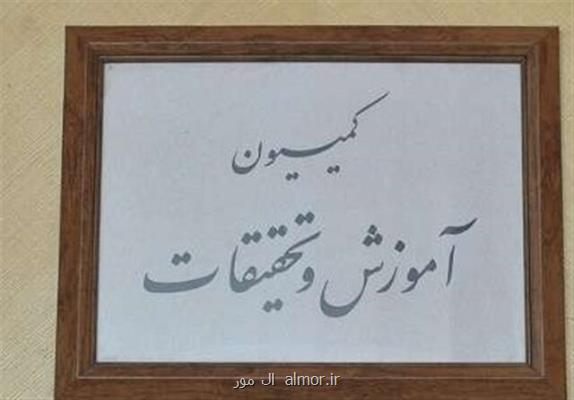 کمیسیون
آموزش و تحقیقات
ال مور almor.ir